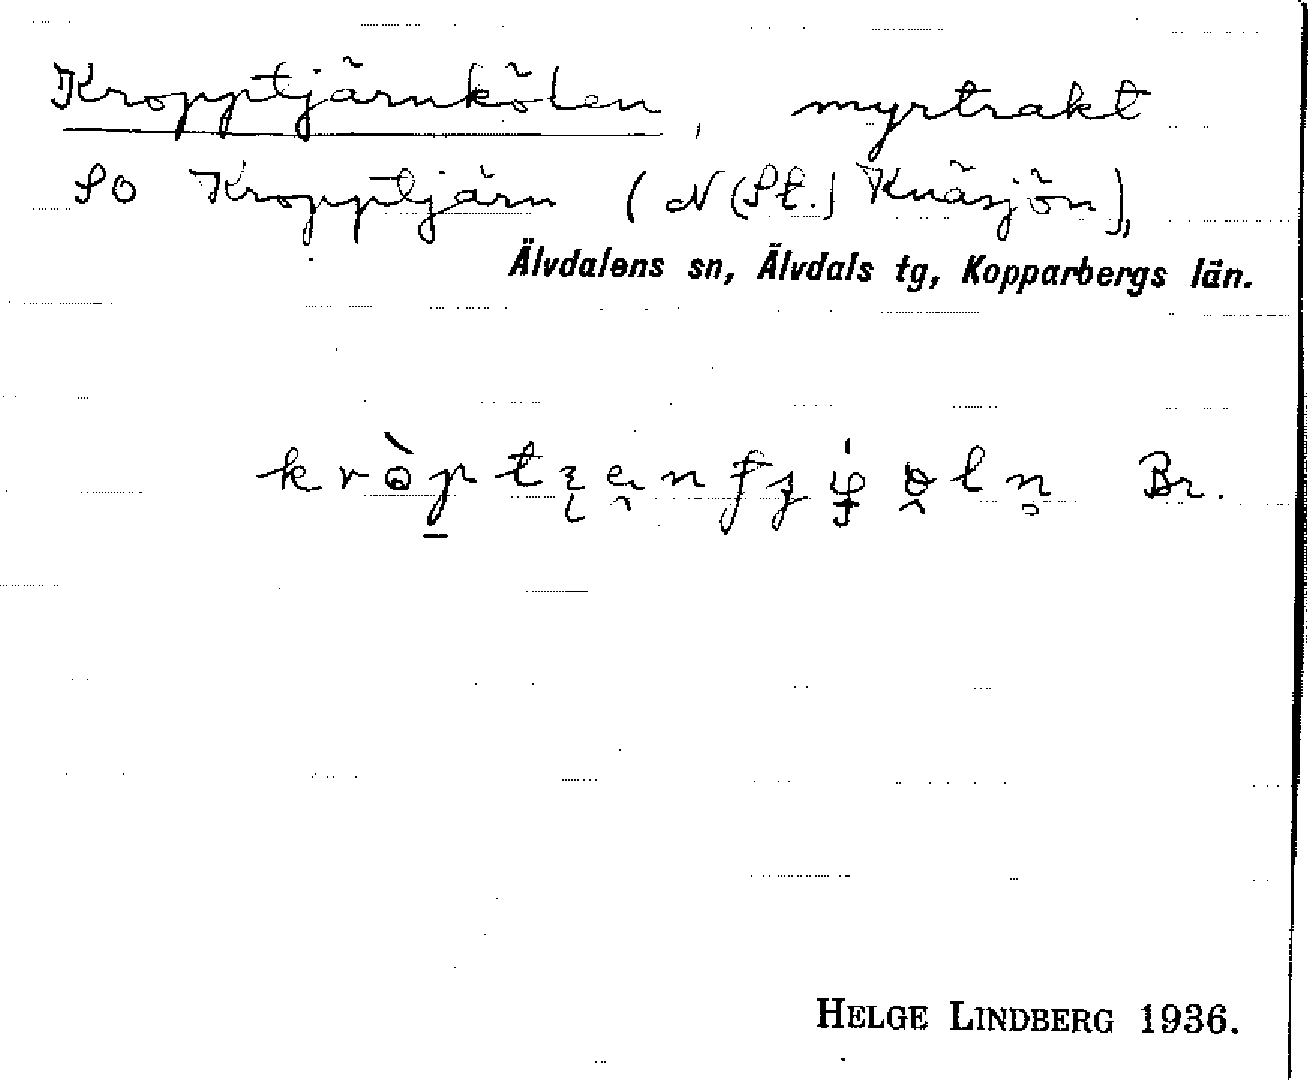 Kropptjärnkölen, myrtrakt
SO Kropptjärn (N (St.) Knäsjön),
Älvdalens sn, Älvdals tg, Kopparbergs län.
Br.
HELGE LINDBERG 1936.